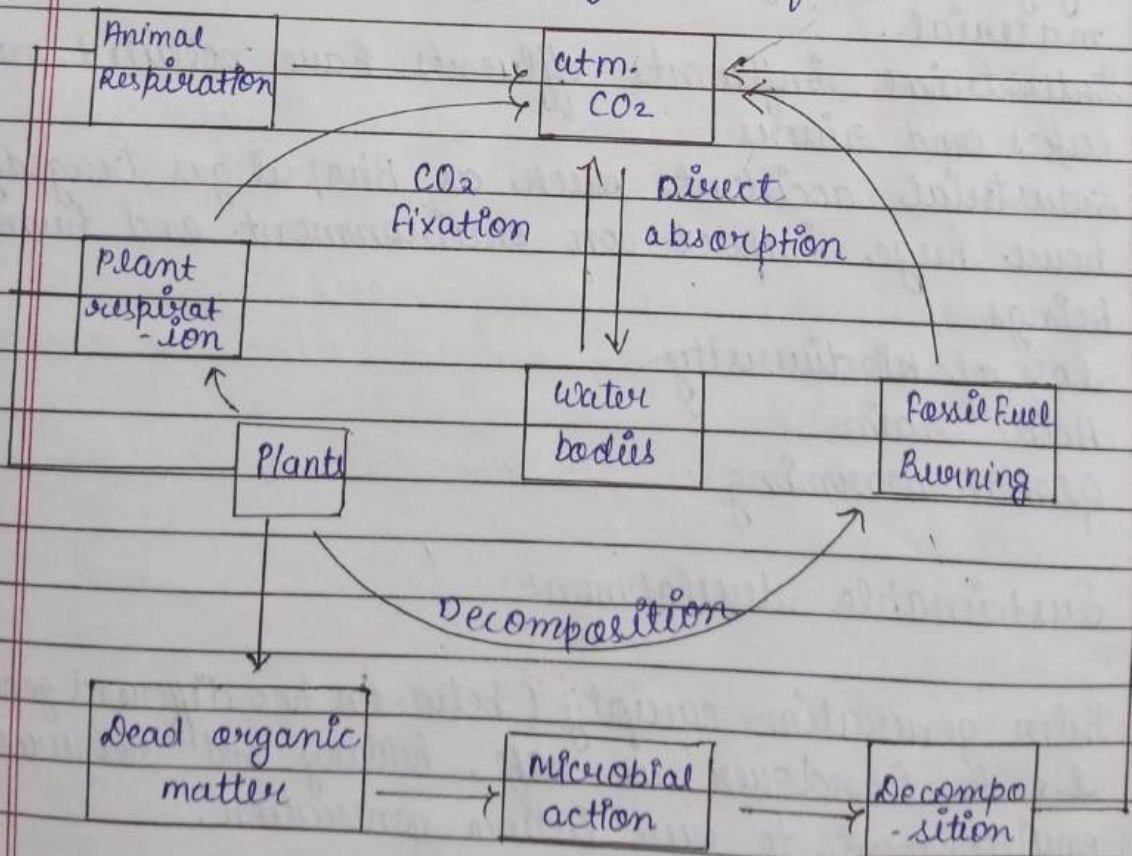 Animal
Respiration
atm.
CO2
CO2
fixation
Direct
absorption
Plant
respirat
-ion
Water
bodies
Fossil Fuel
Burning
Plants
Decomposition
Dead organic
matter
Microbial
action
Decompo
-sition